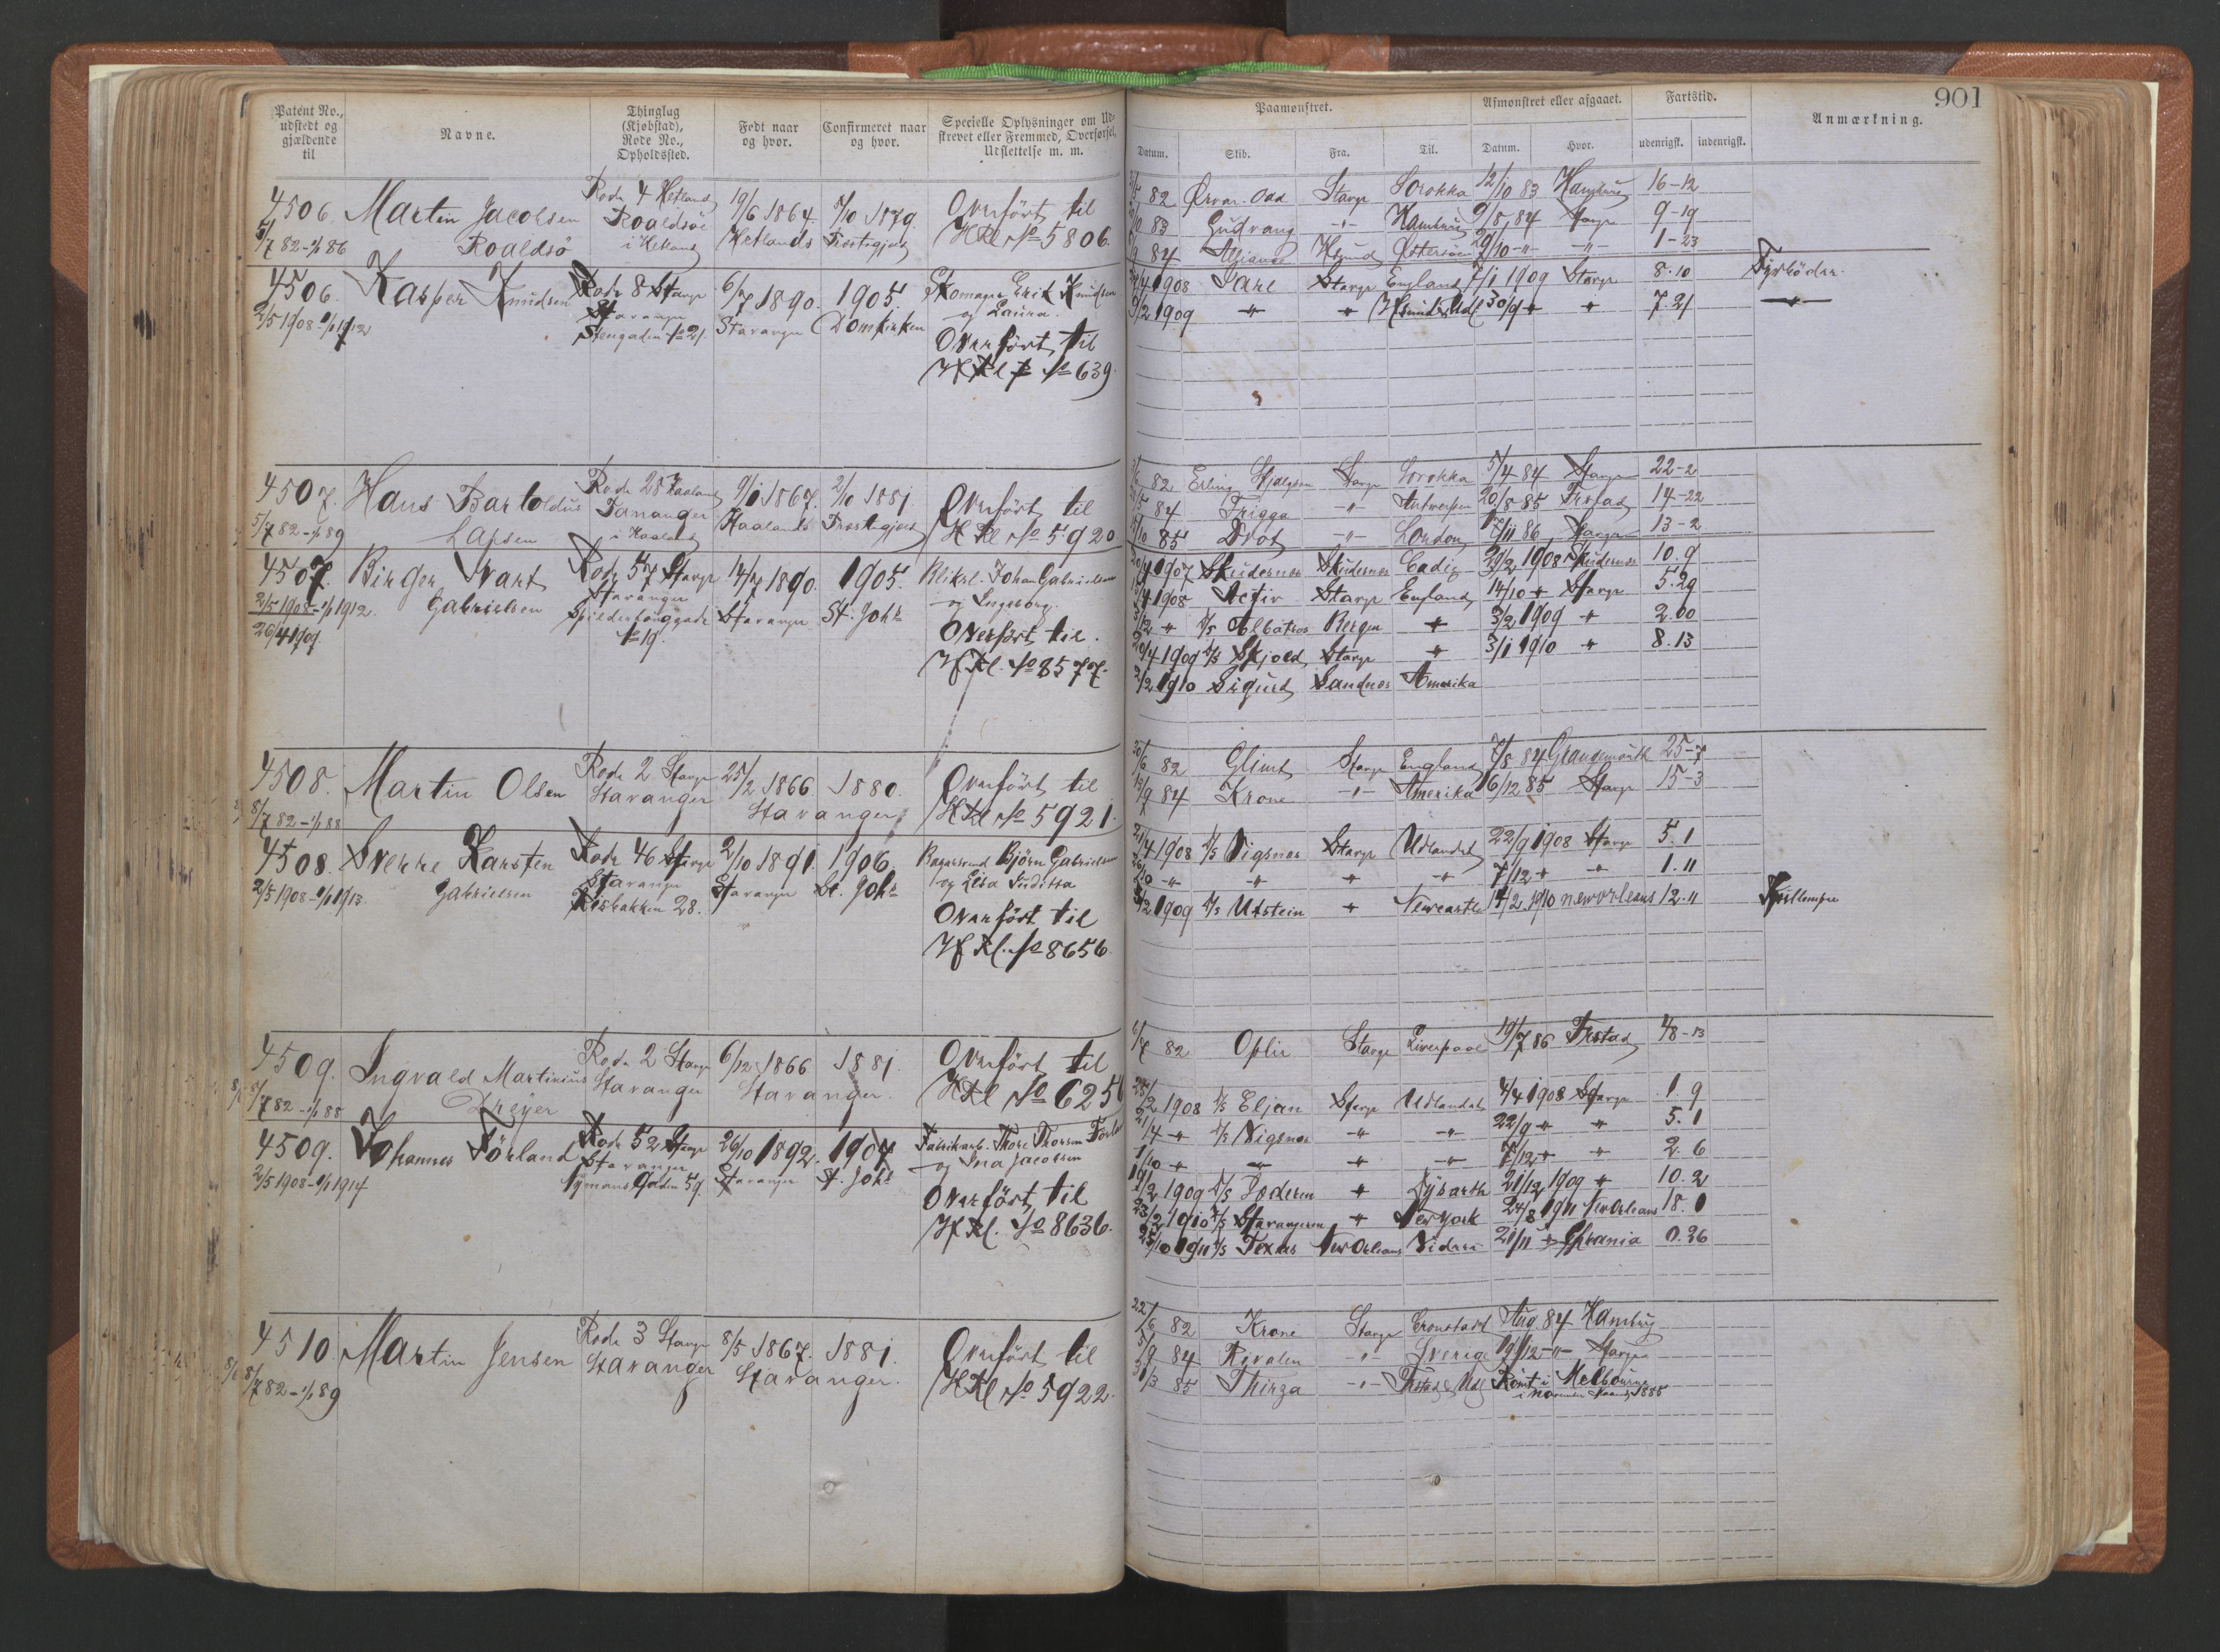 901
Patent No., udstedt og gjældende til
Navne.
Thinglag (Kjøbstad), Rode No., Opholdssted.
Født naar og hvor.
Confirmeret naar og hvor.
Specielle Oplysninger om Udskrevet eller Fremmed, Overførsel, Udslettelse m. m.
Paamønstret.
Afmønstret eller afgaaet.
Fartstid.
Anmærkning.
Datum.
Skib.
Fra.
Til.
Datum.
Hvor.
udenrigsk.
indenrigsk.
4506. Martin Jacobsen Rode 4 Hetland 19/6 1864 1879. Overført til
5/7 82 - 1/1 86 Roaldsö Roaldsöe i Hetland Hetlands Præstegjeld HKl No 5806
82 Ørvar Odd Stavgr Sorokka 12/10 83 Hamburg 16-12
83 Gudvang -"- Hamburg 9/8 84 Stavgr 9-19
84 29/10 -"- -"- 1-23
4506. Kasper Knudsen Rode 8 Stavgr 6/7 1890. 1905. Skomager Erik Knudsen
2/5 1908 - 1/1 1912 Stavanger Stavanger Domkirken og Laura.
Stengaden No 21. Overført til
HKl No 639.
1908 Jarl Stavgr England 1909 Stavgr 8.10 Fyrböder
1909 " " 30/9 " " 7 21 "
4507. Hans Bartoldus Rode 28 Haaland 9/1 1867. 2/10 1881. Overført til
5/7 82 - 1/1 89 Larsen Tananger i Haaland Haalands Præstegjeld HKl No 5920
82 Erling Skjalgson Stavgr Sorokka 5/4 84 Stavgr 22-2
84 Frigga -"- Antwerpen 20/8 85 Frstad 14-22
85 Drot -"- London 86 Stavgr 13-2
4507. Birger Svart Rode 57 Stavgr 14/7 1890. 1905. Bliksl. Johan Gabrielsen
2/5 1908 - 1/1 1912. Gabrielsen Stavanger Stavanger St. Johs og Ingeborg.
26/4 1909. No 19. Overført til.
HKl. No 8577.
1907 Skudesnes Skudesnes Cadiz 29/2 1908 Skudesnes 10.9
1908 Activ Stavgr England 14/10 " Stavgr 5.29
3/12 " D/S Albatros Bergen " 3/2 1909 " 2.00
20/4 1909 D/S Skjold Stavgr " 3/1 1910 " 8.13
2/2 1910 Sigurd Sandnes Amerika
4508. Martin Olsen Rode 2 Stavgr 25/2 1866. 1880. Overført til
8/7 82 - 1/1 88 Stavanger Stavanger HKl No 5921.
82 Glimt Stavgr England 7/8 84 Grangemouth 25-7
84 Krone -"- Amerika 16/12 85 Stavgr 15-3
4508. Sverre Karsten Rode 46 Stavgr 2/10 1891. 1906. Bjørn Gabrielsen
2/5 1908 - 1/1 1913. Gabrielsen Stavanger Stavanger St. Johs
28. Overført til
HKl. No 8656.
21/4 1908 D/S Vigsnes Stavgr Udlandet 22/9 1908 Stavgr 5.1
" " " " 7/12 " " 1.11
1909 D/S Utstein " Newcastle 1910 New Orleans 12.11
4509. Ingvald Martinius Rode 2 Stavgr 6/12 1866 1881. Overført til
8/7 82 - 1/1 88 Dreyer Stavanger Stavanger. HKl No 625
6/7 82 Ophir Stavgr Liverpool 19/7 86 Frstad 48-13
4509. Johannes Törland Rode 52 Stavgr 26/10 1892. 1907 Fabrikarb. Thore Thorsen
2/5 1908 - 1/1 1914 Stavanger Stavanger St. Johs og Ina Jacobsen
Nymansgaden 59. Overført til
HKl. No 8636.
1908 D/S Eljan Stavgr Udlandet 4/4 1908 Stavgr 1.9
21/4 " D/S Vigsnes " " 22/9 " " 5.1
1/10 " " " " 7/12 " " 2.6
1909 D/S " 21/12 1909 " 10.2
23/2 1910 D/S Stavangeren " New York 24/8 1911 New Orleans 18.0
25/10 1911 D/S Texas New Orleans 21/11 " Chrania 0.26
4510. Martin Jensen Rode 3 Stavgr 8/5 1867. 1881. Overført til
8/7 82 - 1/1 89 Stavanger Stavanger. HKl No 5922.
22/6 82 Krone Stavgr Cronstadt Aug. 84 Hamburg
5/9 84 Rivalen -"- Sverige 19/12 -"- Stavgr
31/3 85 Thirza -"- Frstad & Udl Rømt i Melbourne
i November Maaned 1885